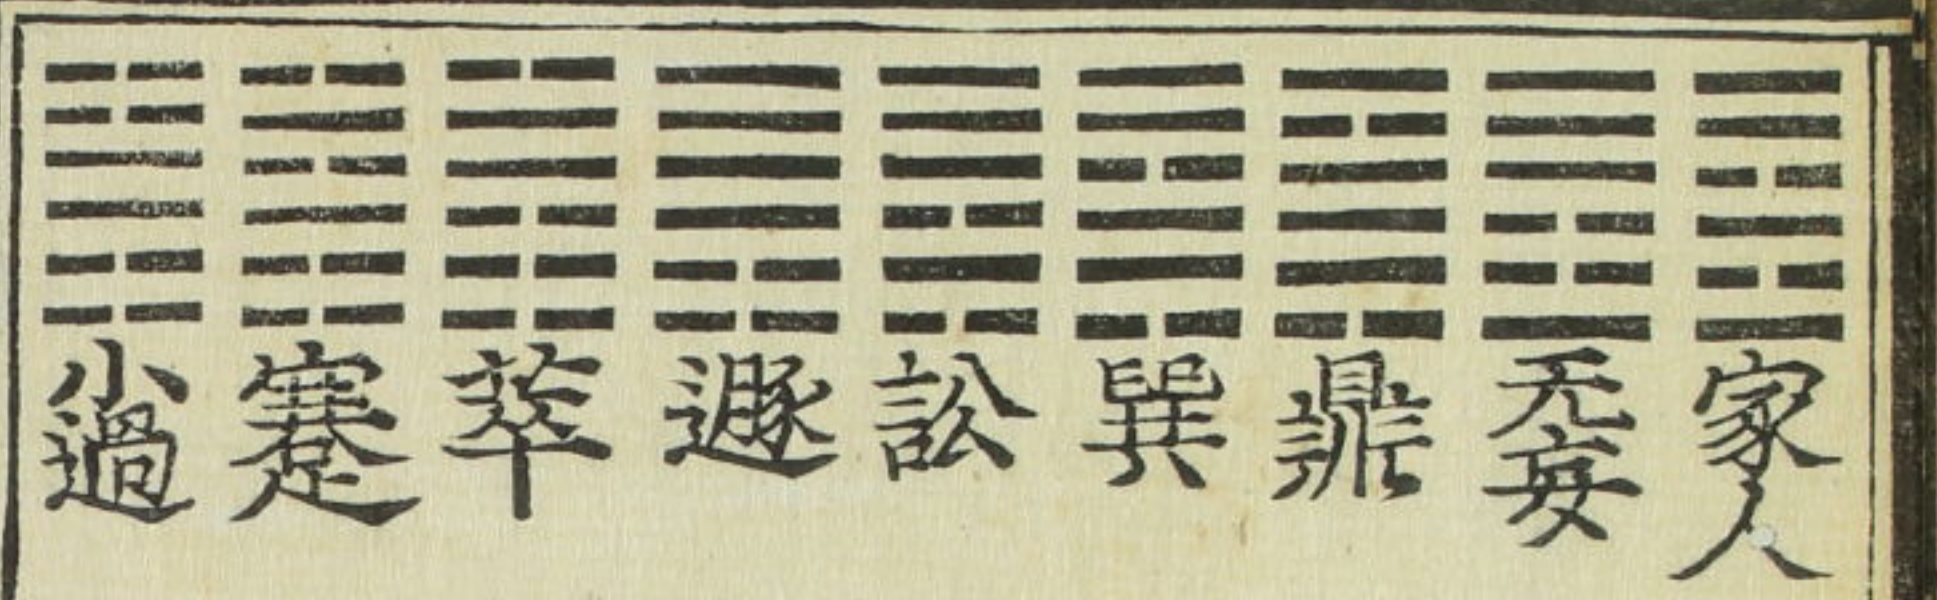 家人
无妄
鼎
巽
訟
遯
萃
蹇
小過